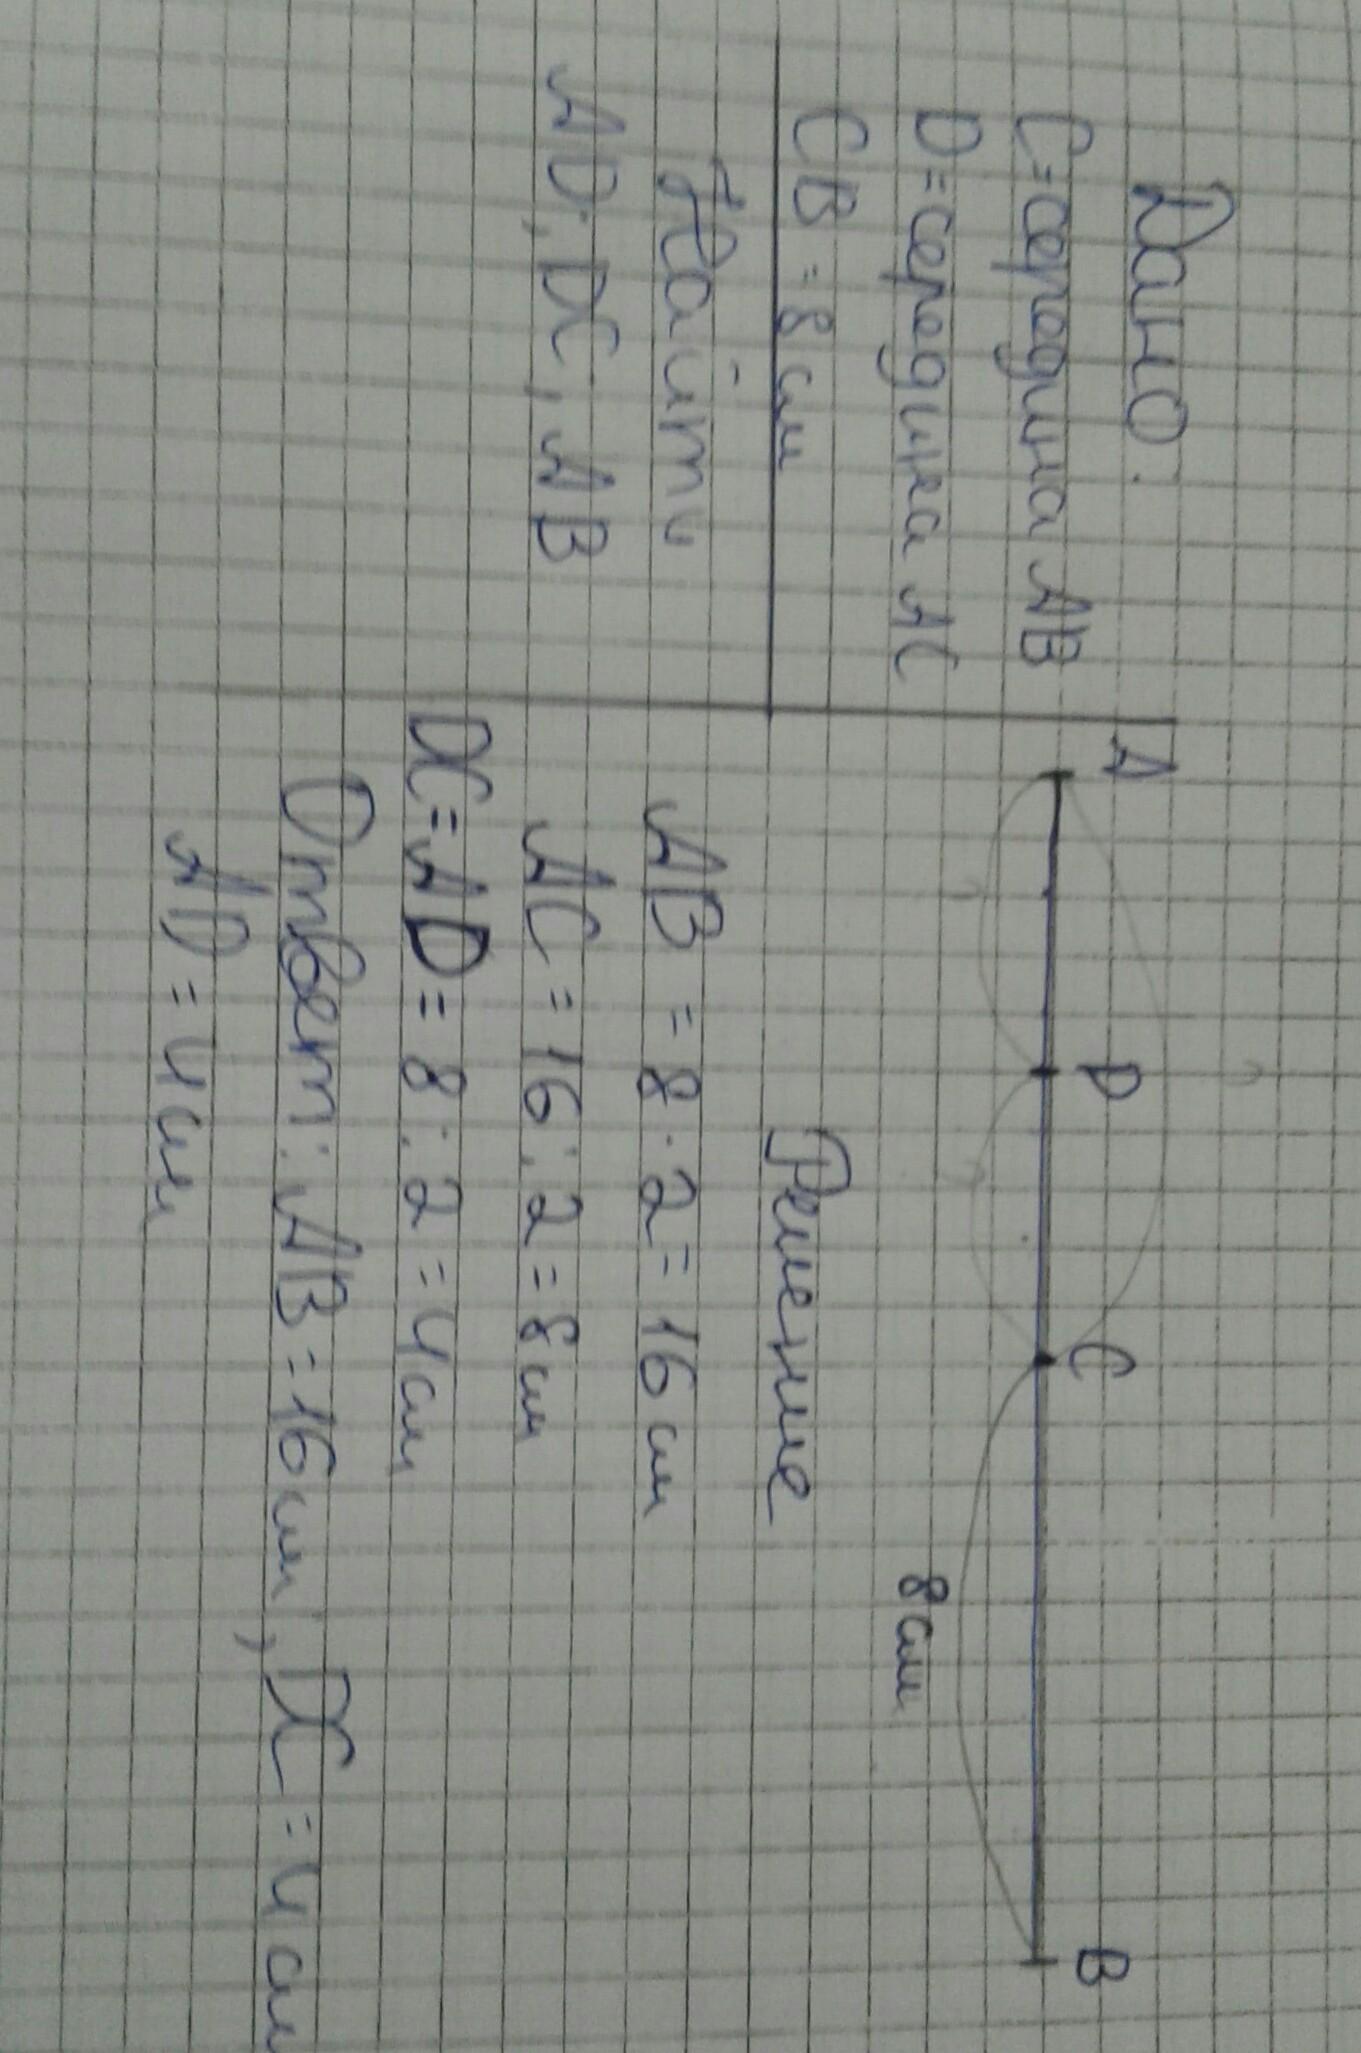 Дано:
С=середина АВ
D=середина АС
СВ = 8 см
Найти
AD; DC, AB
A D C B
8 см
Решение
AB = 8 · 2 = 16 см
AC = 16 : 2 = 8 см
DC = AD = 8 : 2 = 4 см
Ответ: AB = 16 см, DC = 4 см
AD = 4 см